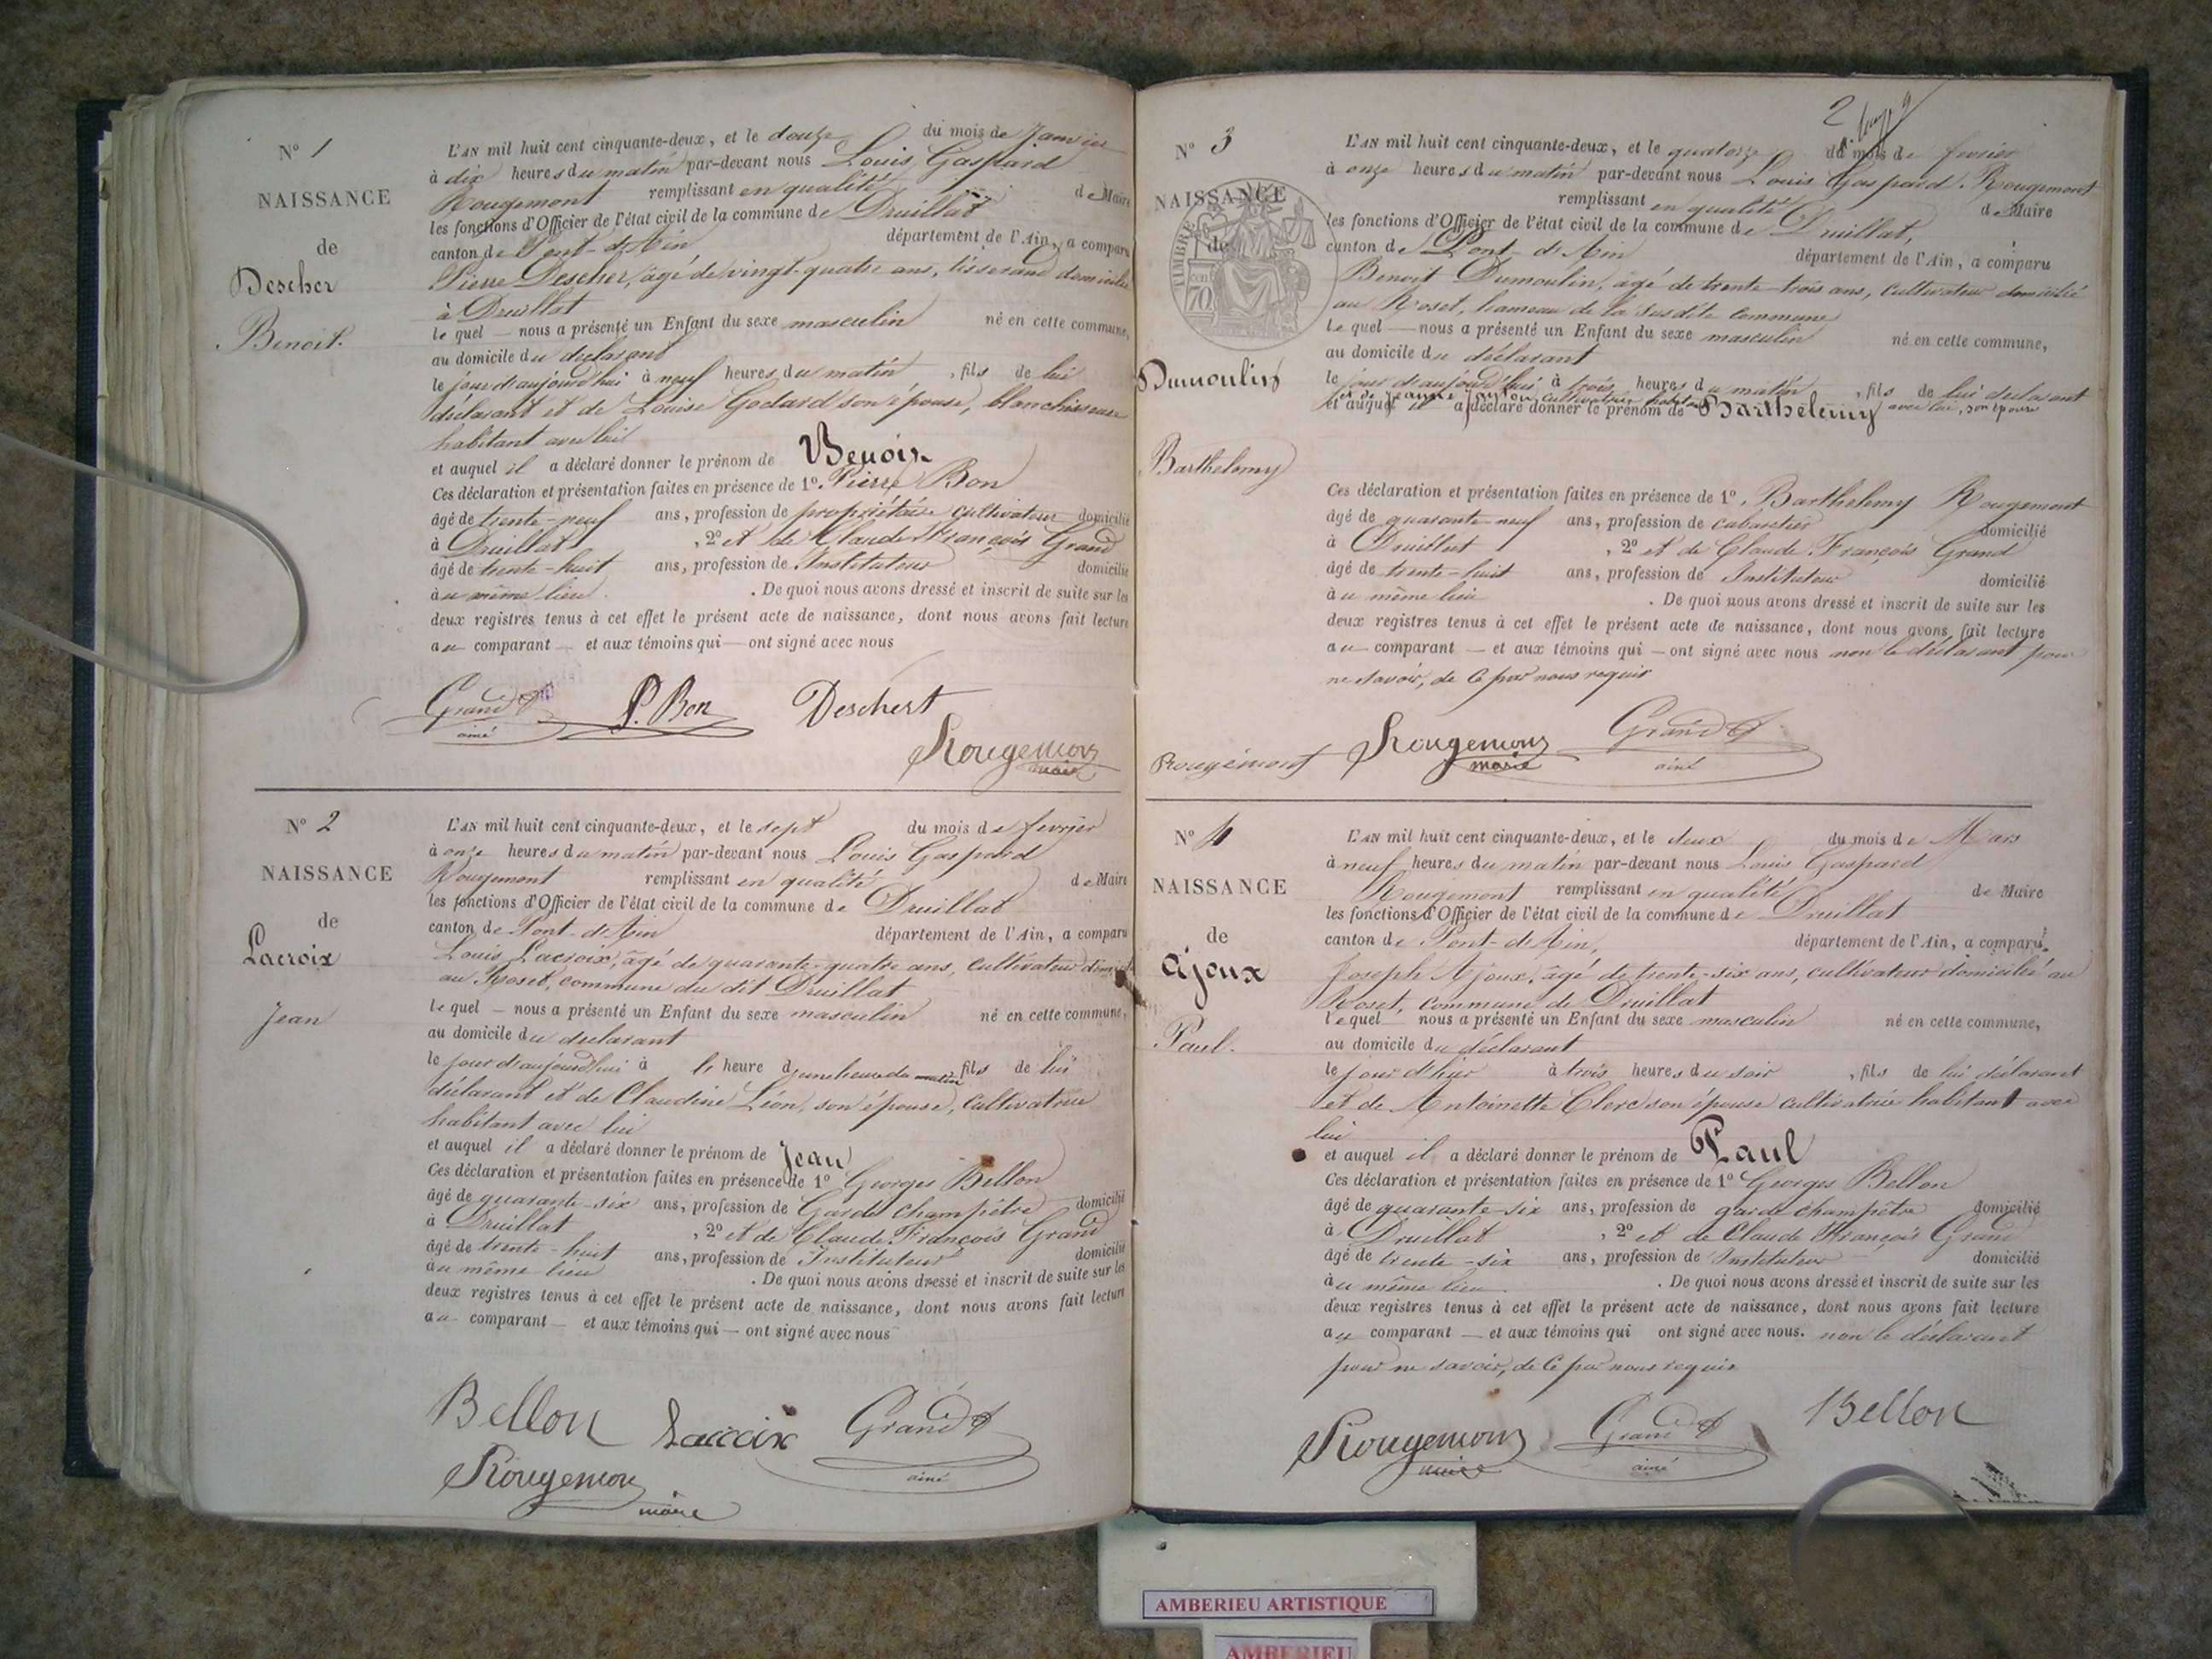 N° 1
NAISSANCE
de
Descher
Benoit.
L'AN mil huit cent cinquante-deux, et le douze du mois de Janvier
à dix heures du matin par-devant nous Louis Gaspard
Rougemont remplissant en qualité de Maire
les fonctions d'Officier de l'état civil de la commune de Druillat
canton de Pont-d'Ain département de l'Ain, a comparu
Pierre Descher, âgé de vingt-quatre ans, tisserand domicilié
à Druillat
le quel — nous a présenté un Enfant du sexe masculin né en cette commune,
au domicile du déclarant
le jour d'aujourd'hui à neuf heures du matin, fils de lui
déclarant et de Louise Godard son épouse, blanchisseuse
habitant avec lui
et auquel il a déclaré donner le prénom de Benoit
Ces déclaration et présentation faites en présence de 1°. Pierre Bon
âgé de trente-neuf ans, profession de propriétaire cultivateur domicilié
à Druillat, 2° et de Claude François Grand
âgé de trente-huit ans, profession de Instituteur domicilié
au même lieu. De quoi nous avons dressé et inscrit de suite sur les
deux registres tenus à cet effet le présent acte de naissance, dont nous avons fait lecture
au comparant — et aux témoins qui — ont signé avec nous
Grand aîné P. Bon Deschert
Rougemont maire
N° 2
NAISSANCE
de
Lacroix
Jean
L'AN mil huit cent cinquante-deux, et le sept du mois de fevrier
à onze heures du matin par-devant nous Louis Gaspard
Rougemont remplissant en qualité de Maire
les fonctions d'Officier de l'état civil de la commune de Druillat
canton de Pont-d'Ain département de l'Ain, a comparu
Louis Lacroix, âgé de quarante-quatre ans, cultivateur domicilié
au Roset, commune du dit Druillat
le quel — nous a présenté un Enfant du sexe masculin né en cette commune,
au domicile du déclarant
le jour d'aujourd'hui à heure d'une heure du matin fils de lui
déclarant et de Claudine Léon, son épouse, cultivatrice
habitant avec lui
et auquel il a déclaré donner le prénom de Jean
Ces déclaration et présentation faites en présence de 1° Georges Bellon
âgé de quarante-six ans, profession de Garde champêtre domicilié
à Druillat, 2° et de Claude François Grand
âgé de trente-huit ans, profession de Instituteur domicilié
au même lieu. De quoi nous avons dressé et inscrit de suite sur les
deux registres tenus à cet effet le présent acte de naissance, dont nous avons fait lecture
au comparant — et aux témoins qui — ont signé avec nous
Bellon Lacroix Grand aîné
Rougemont maire
2
N° 3
NAISSANCE
de
TIMBRE
70
Dumoulin
Barthelemy
L'AN mil huit cent cinquante-deux, et le quatorze du mois de fevrier
à onze heures du matin par-devant nous Louis Gaspard Rougemont
remplissant en qualité de Maire
les fonctions d'Officier de l'état civil de la commune de Druillat,
canton de Pont-d'Ain département de l'Ain, a comparu
Benoit Dumoulin, âgé de trente-trois ans, cultivateur domicilié
au Roset, hameau de la susdite commune
le quel — nous a présenté un Enfant du sexe masculin né en cette commune,
au domicile du déclarant
le jour d'aujourd'hui à trois heures du matin, fils de lui déclarant
et de Jeanne cultivatrice avec lui, son épouse
et auquel il a déclaré donner le prénom de Barthelemy
Ces déclaration et présentation faites en présence de 1°. Barthelemy Rougemont
âgé de quarante-neuf ans, profession de cabaretier domicilié
à Druillat, 2° et de Claude François Grand
âgé de trente-huit ans, profession de Instituteur domicilié
au même lieu. De quoi nous avons dressé et inscrit de suite sur les
deux registres tenus à cet effet le présent acte de naissance, dont nous avons fait lecture
au comparant — et aux témoins qui — ont signé avec nous non le déclarant pour
ne savoir, de ce par nous requis
Rougemont Rougemont maire Grand aîné
N° 4
NAISSANCE
de
Ajoux
Paul.
L'AN mil huit cent cinquante-deux, et le deux du mois de Mars
à neuf heures du matin par-devant nous Louis Gaspard
Rougemont remplissant en qualité de Maire
les fonctions d'Officier de l'état civil de la commune de Druillat
canton de Pont-d'Ain, département de l'Ain, a comparu
Joseph Ajoux, âgé de trente-six ans, cultivateur domicilié au
Roset, commune de Druillat
lequel nous a présenté un Enfant du sexe masculin né en cette commune,
au domicile du déclarant
le jour d'hier à trois heures du soir, fils de lui déclarant
et de Antoinette Clerc son épouse cultivatrice habitant avec
lui
et auquel il a déclaré donner le prénom de Paul
Ces déclaration et présentation faites en présence de 1° Georges Bellon
âgé de quarante-six ans, profession de garde champêtre domicilié
à Druillat, 2° et de Claude François Grand
âgé de trente-six ans, profession de Instituteur domicilié
au même lieu. De quoi nous avons dressé et inscrit de suite sur les
deux registres tenus à cet effet le présent acte de naissance, dont nous avons fait lecture
au comparant — et aux témoins qui ont signé avec nous. non le déclarant
pour ne savoir, de ce par nous requis
Rougemont maire Grand aîné Bellon
AMBERIEU ARTISTIQUE
AMBERIEU